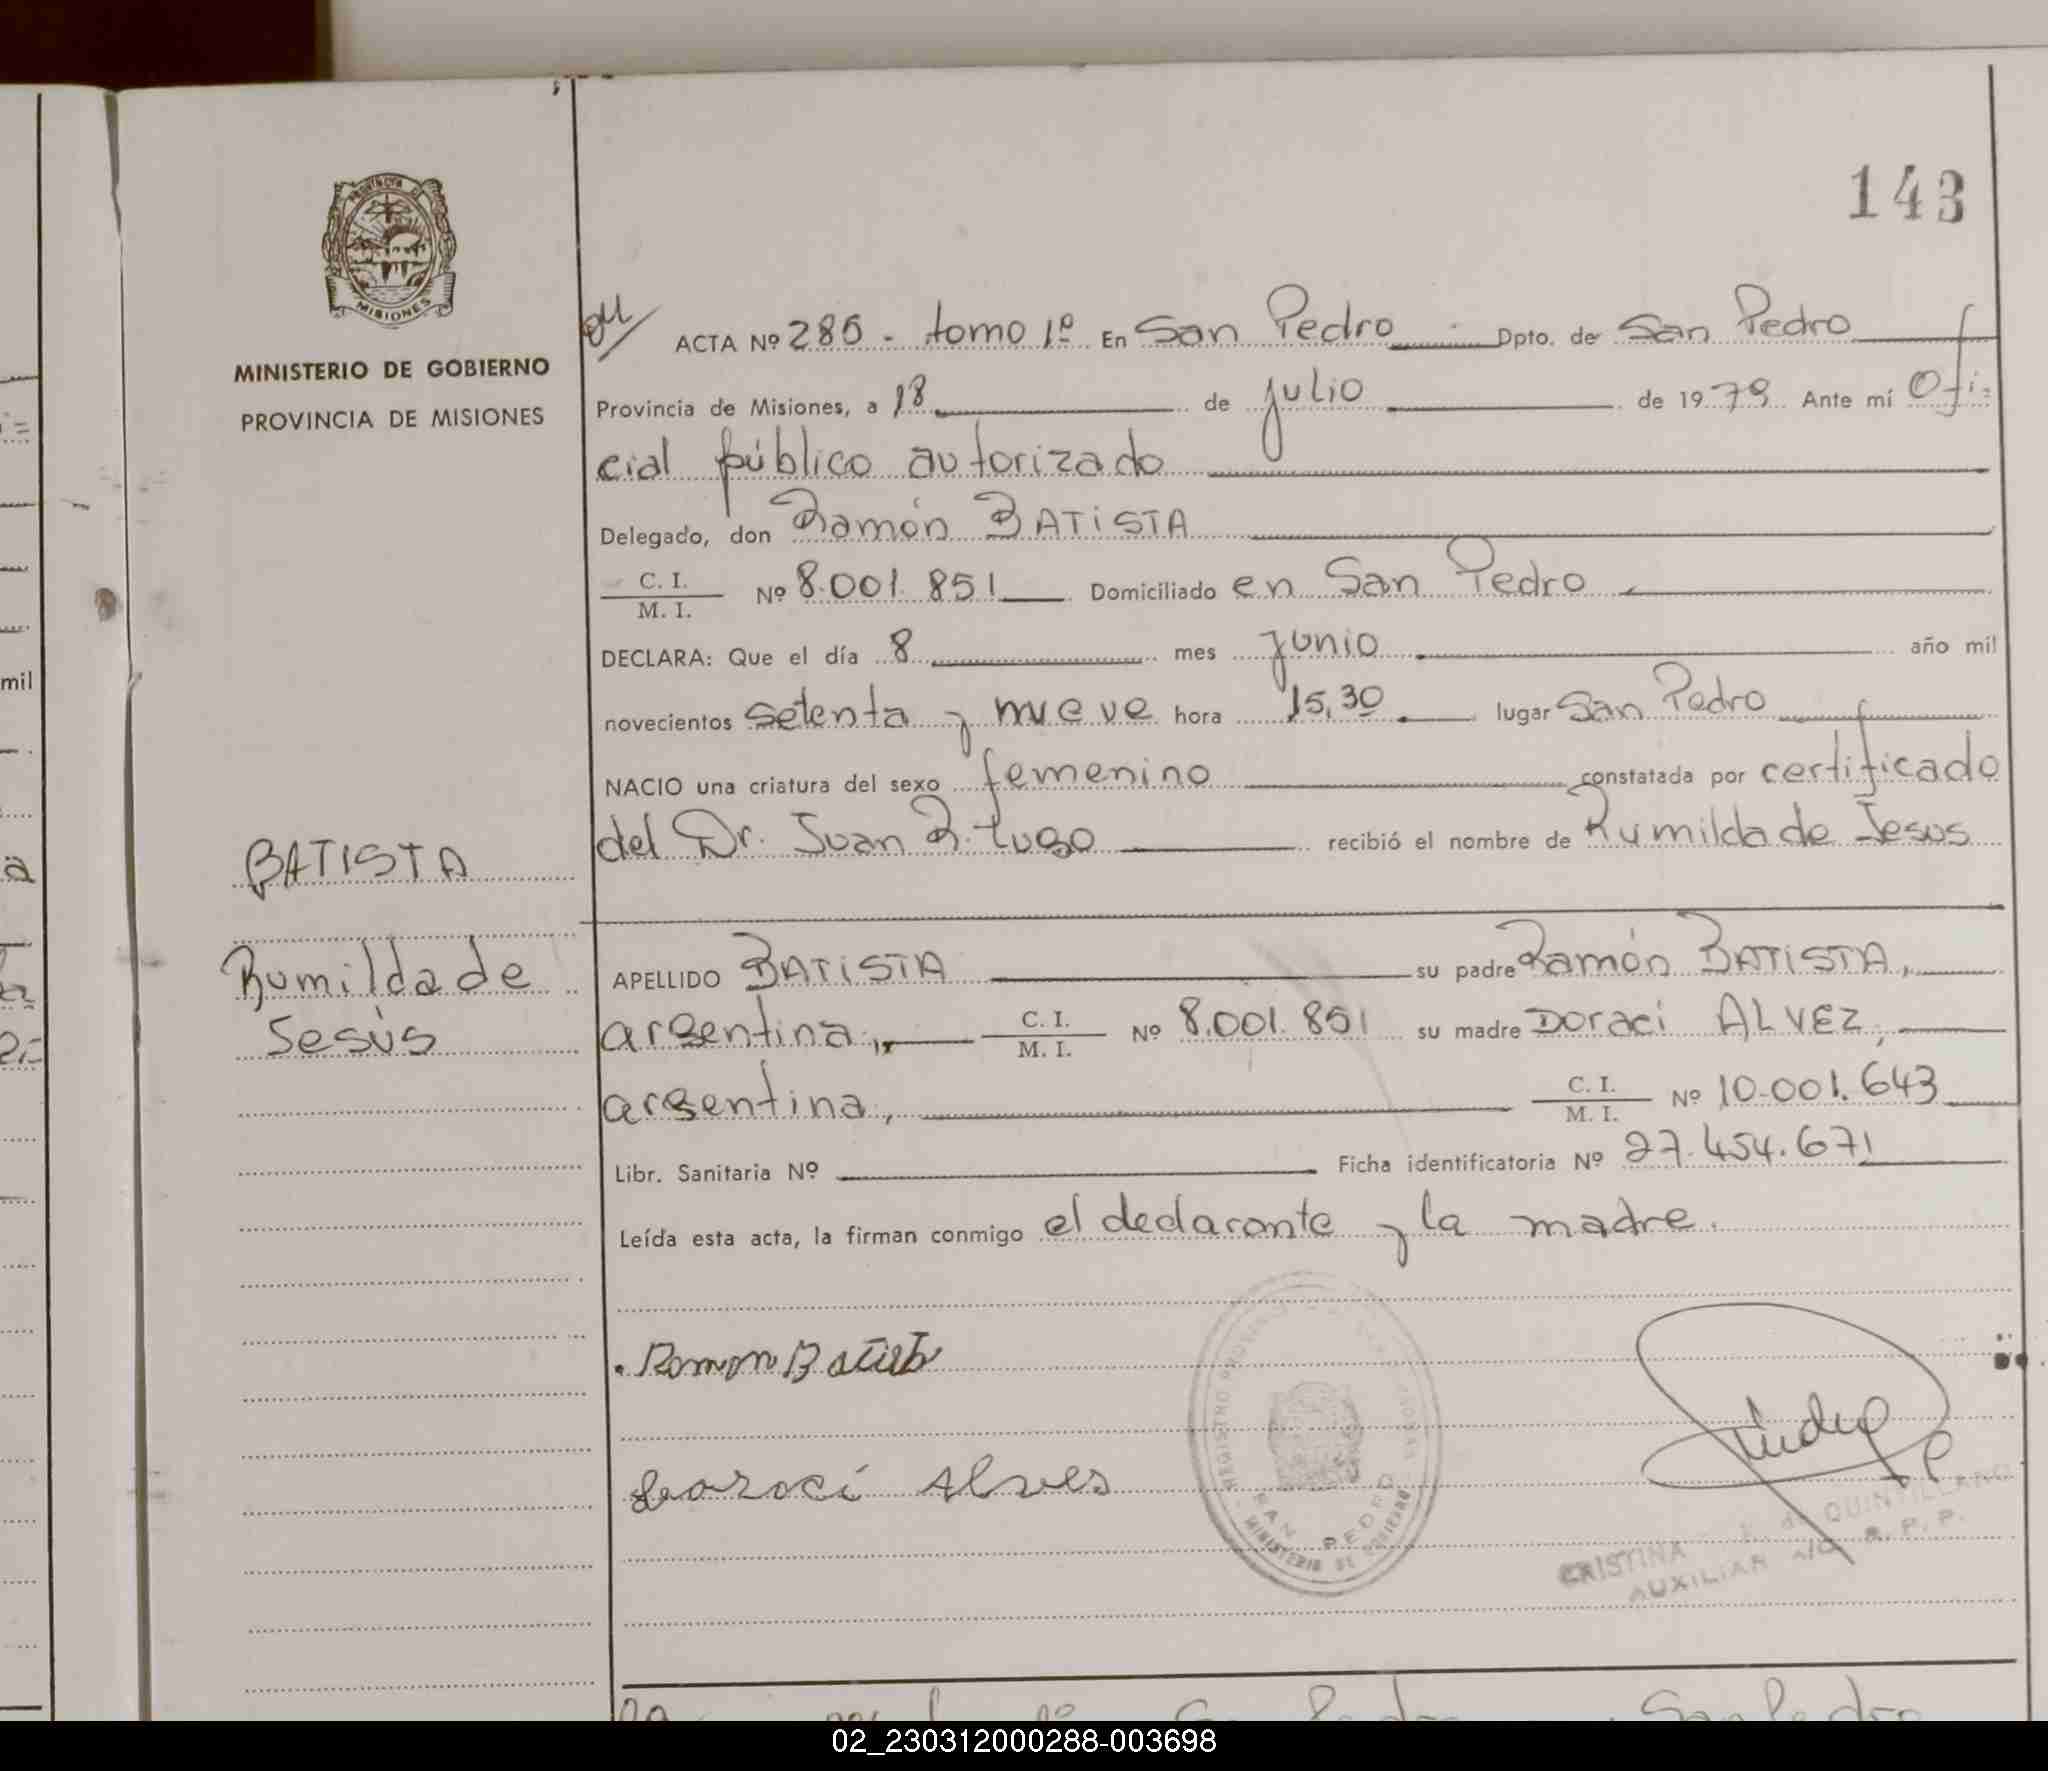 143
PROVINCIA DE
MISIONES
MINISTERIO DE GOBIERNO
PROVINCIA DE MISIONES
ACTA Nº 285 - tomo 1º En San Pedro Dpto. de San Pedro
Provincia de Misiones, a 18 de julio de 1979 Ante mí Ofi=
cial público autorizado
Delegado, don Ramón BATISTA
C. I.
M. I. Nº 8.001.851 Domiciliado en San Pedro
DECLARA: Que el día 8 mes junio año mil
novecientos setenta y nueve hora 15,30 lugar San Pedro
NACIO una criatura del sexo femenino constatada por certificado
del Dr. Juan R. Lugo recibió el nombre de Rumilda de Jesus
BATISTA
Rumilda de
Jesús
APELLIDO BATISTA su padre Ramón BATISTA,
argentina, C. I.
M. I. Nº 8.001.851 su madre Doraci ALVEZ,
argentina, C. I.
M. I. Nº 10.001.643
Libr. Sanitaria Nº Ficha identificatoria Nº 27.454.671
Leída esta acta, la firman conmigo el declarante y la madre.
Ramon Batista
Doraci Alves
SAN PEDRO
MINISTERIO DE GOBIERNO
CRISTINA de QUINTILLANO
AUXILIAR A/C R. P. P.
mil
02_230312000288-003698